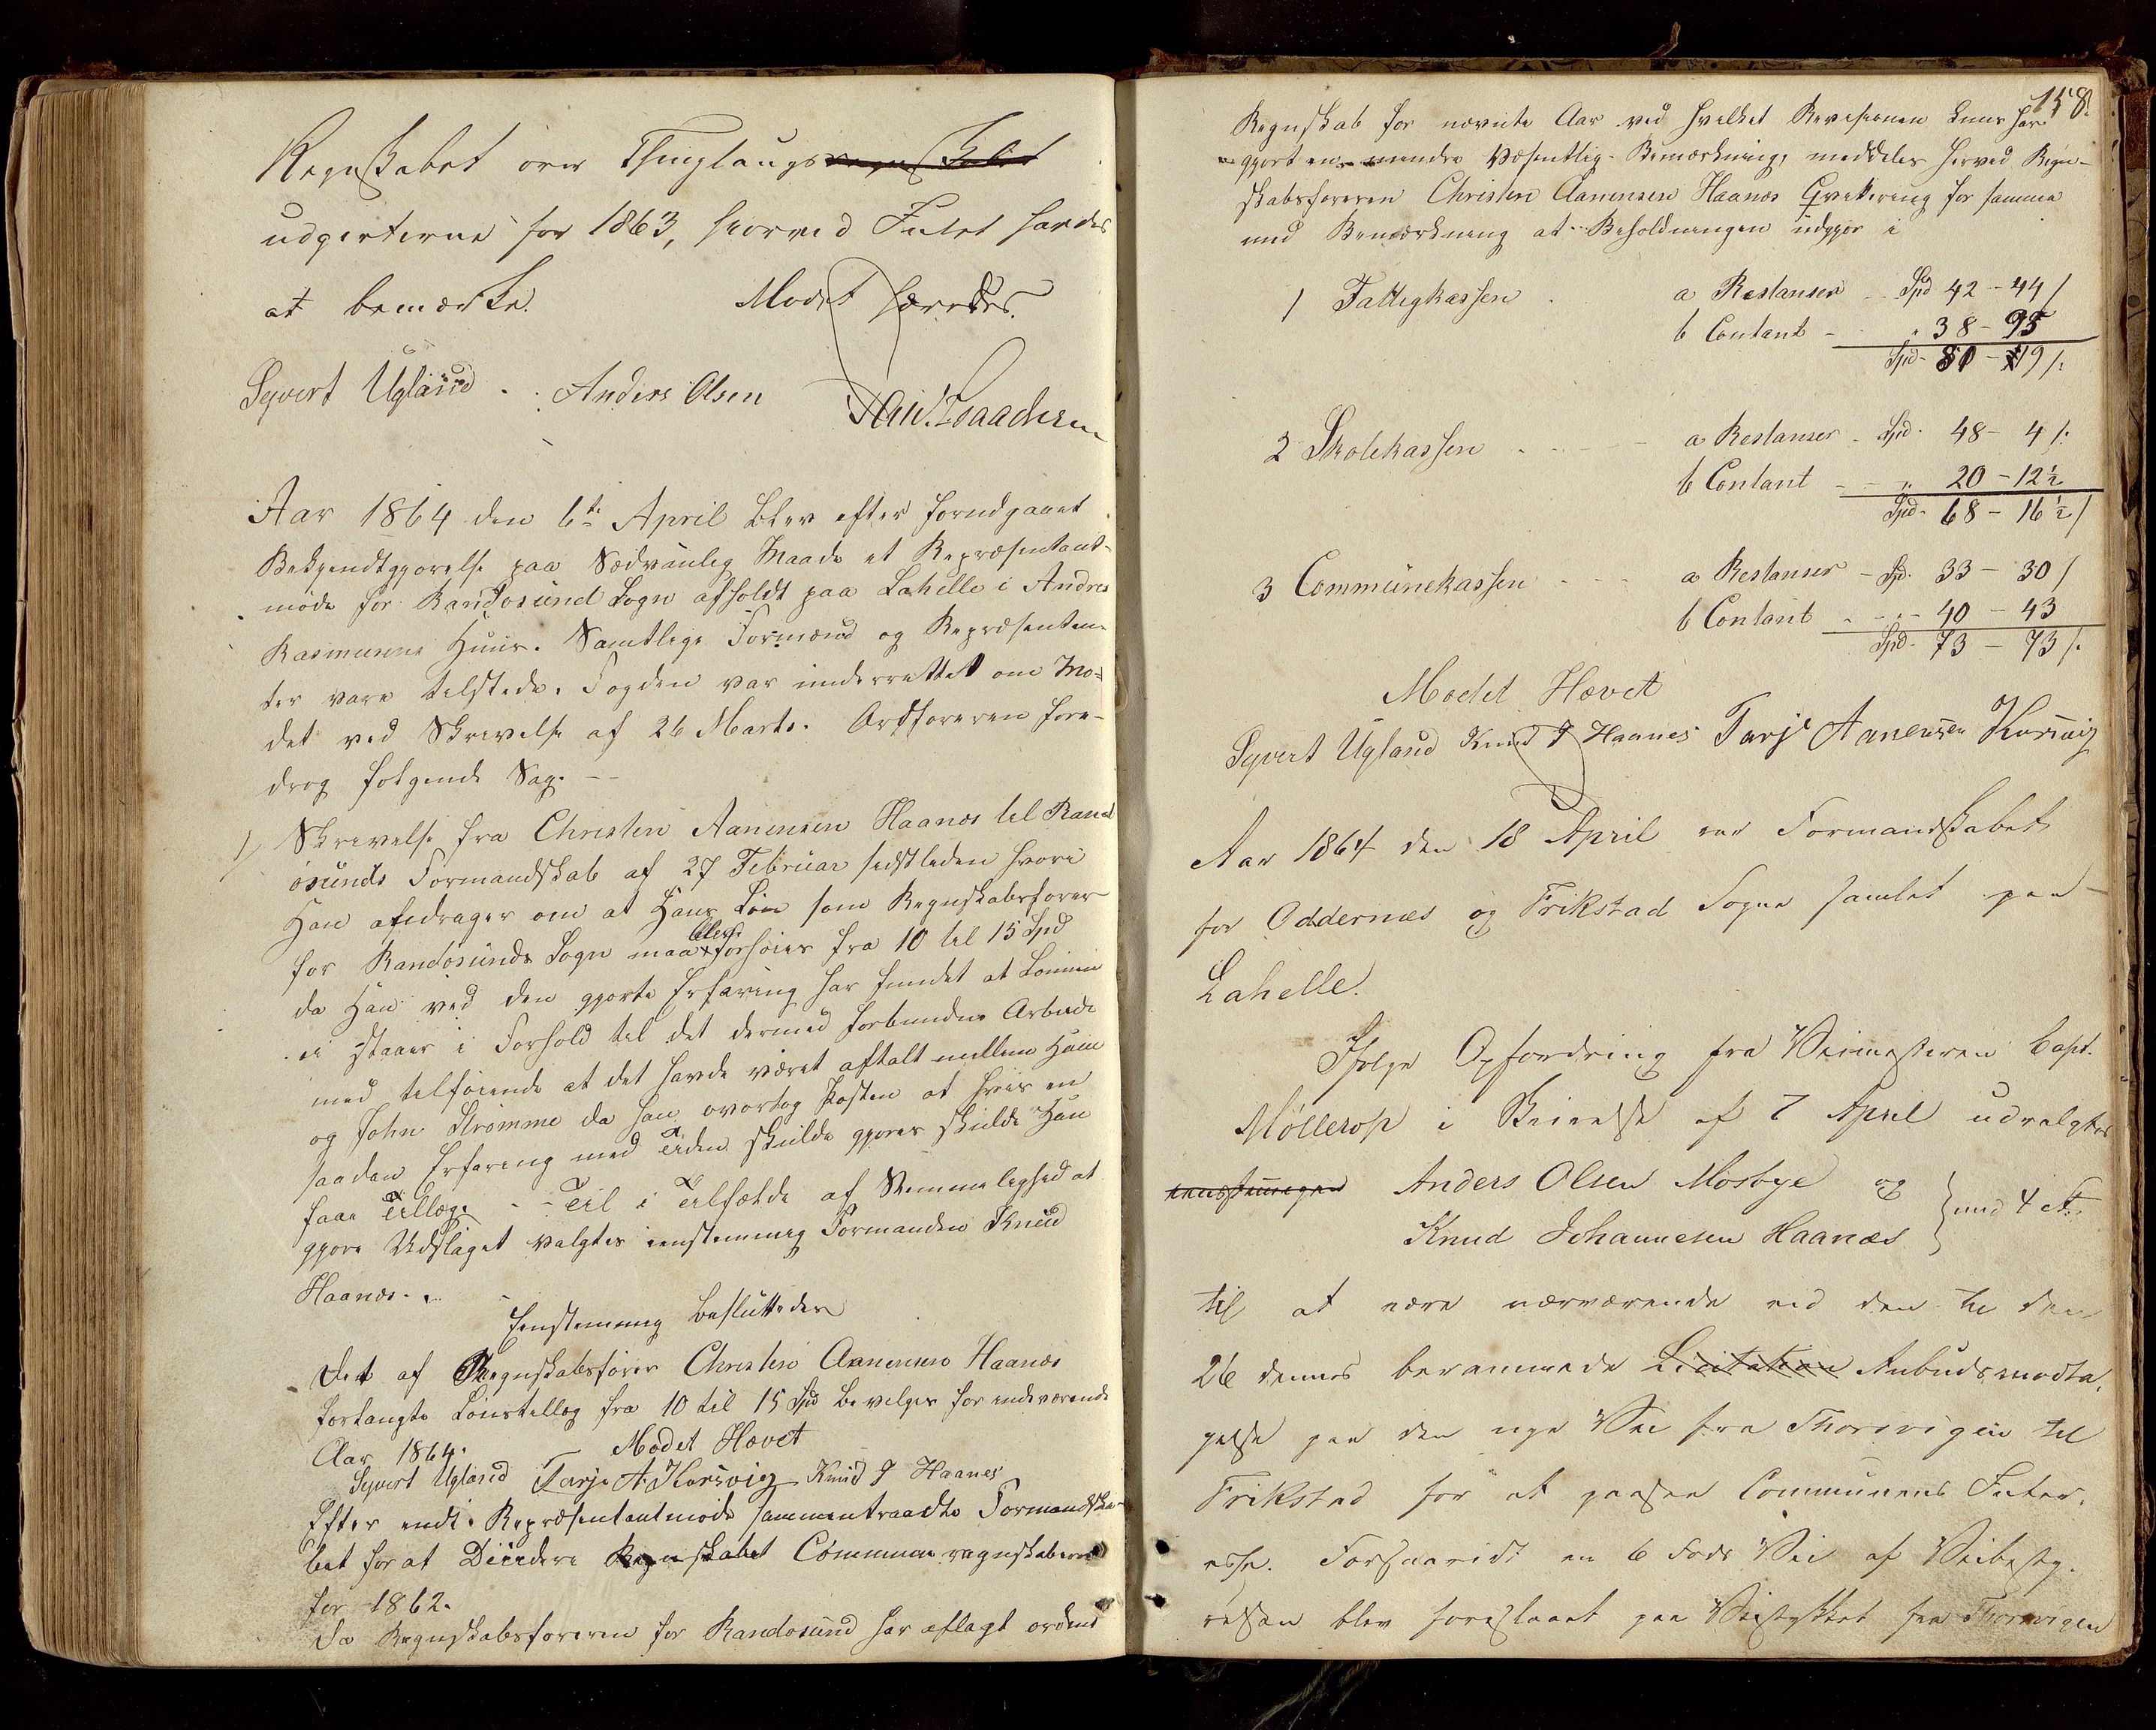 Regnskabet over Thinglaugsregnskabet
udgifterne for 1863, hvorved Intet havdes
at bemærke.
Modet hævedes.
Syvert Ugland Anders Olsen
Aar 1864 den 6te April blev efter forudgaaet
Bekjendtgjørelse paa Sædvanlig Maade et Repræsentant-
møde for Randøsund Sogn afholdt paa Lahelle i Andres
Rasmusens Huus. Samtlige Formænd og Repræsentan-
ter vare tilstede. Fogden var underrettet om Mø-
det ved Skrivelse af 26 Marts. Ordføreren fore-
drog følgende Sag.
1/ Skrivelse fra Christen Aanensen Haanes til Rand
øsunds Formandskab af 27 Februar sidstleden hvori
Han andrager om at Hans Løn som Regnskabsfører
for Randøsunds Sogn maa blive forhøiet fra 10 til 15 Spd
da Han ved den gjorte Erfaring har fundet at Lønnen
ei staaer i Forhold til det dermed forbundne Arbeide
med tilføiende at det havde været aftalt mellem Ham
og John Strømme da han overtog Posten at hvis en
saadan Erfaring med Tiden skulde gjøres skulde Han
faae Tillæg. - - Til i Tilfælde af Stemmelighed at
gjøre Udslaget valgtes eenstemmig Formanden Knud
Haanes.
Eenstemmig besluttedes
Det af Regnskabsfører Christen Aanensen Haanes
forlangte Lønstillæg fra 10 til 15 Spd bevilges for indeværende
Aar 1864.
Mødet Hævet
Syvert Ugland Tarje A. Korsvig Knud J Haanes
Efter endt Repræsentantmøde sammentraadte Formandska-
bet for at Deciidere Regnskabet Commune regnskaberne
for 1862.
Da Regnskabsføreren for Randøsund har aflagt ordens
158.
Regnskab for nævnte Aar ved hvilket Revisionen kuns har
gjort en mindre Væsentlig Bemærkning, meddeles herved Regn-
skabsføreren Christen Aanensen Haanes Qvittering for samme
med Bemærkning at Beholdningen udgjør i
1 Fattigkassen a Restanser Spd 42 - 44 /
b Contant - " 38 - 95
Spd. 81 - 19 /.
2 Skolekassen a Restanser - Spd. 48 - 4 /.
b Contant - - " 20 - 12 ½
Spd. 68 - 16 ½ /
3 Communekassen a Restanser - Spd. 33 - 30 /
b Contant - 40 - 43
Spd. 73 - 73 /.
Mødet Hævet
Syvert Ugland Knud J Haanes Tarje Aanensen Korsvig
Aar 1864 den 18 April var Formandskabet
for Oddernes og Trikstad Sogne samlet paa
Lahelle.
Ifølge Opfordring fra Veimesteren Capt.
Møllerop i Skrivelse af 7 April udvalgtes
Anders Olsen Mosbye og
Knud Johannesen Haanæs } med 4 St.
til at være nærværende ved den til den
26 dennes berammede Licitation Anbudsmodta-
gelse paa den nye Vei fra Thorsvigen til
Trikstad for at paasee Communens Inter-
esse. Forsaavidt en 6 Fods Vei af Veibesty-
relsen blev foreslaaet paa Veistykket fra Thorsvigen